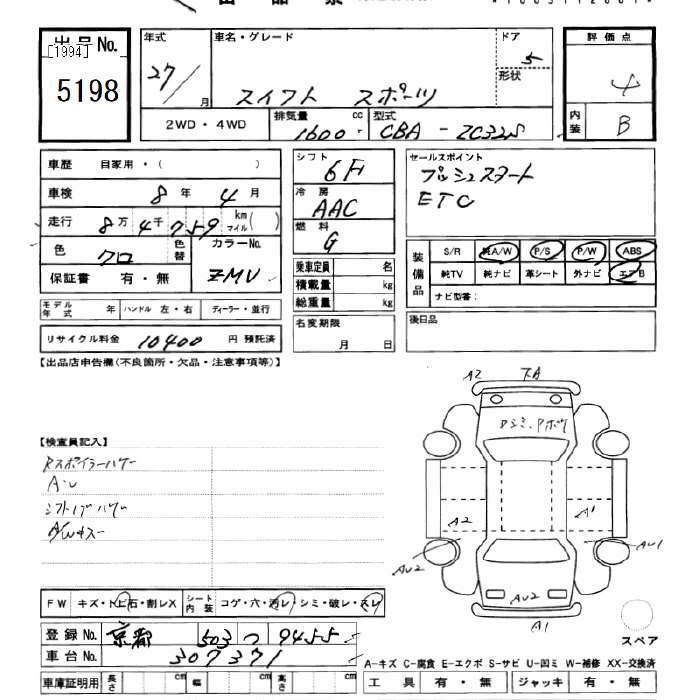 出品票
出品No.
[1994]
5198
年式
27/
月
車名・グレード
スイフト スポーツ
ドア
5
形状
評価点
4
内装
B
2WD・4WD
排気量
1600 cc
型式
CBA - ZC32S
車歴 自家用・( )
車検 8年 4月
走行 8万 4千 759 km マイル( )
色 クロ
色替
カラーNo.
ZMV
保証書 有・無
モデル年式 年
ハンドル 左・右
ディーラー・並行
リサイクル料金 10400 円 預託済
シフト
6F
冷房
AAC
燃料
G
乗車定員 名
積載量 kg
総重量 kg
名変期限
月 日
セールスポイント
プッシュスタート
ETC
装備品
S/R 純A/W P/S P/W ABS
純TV 純ナビ 革シート 外ナビ エアB
ナビ型番:
後日品
【出品店申告欄(不良箇所・欠品・注意事項等)】
【検査員記入】
Rスポイラーハゲー
A・U
シフトノブハゲ
A/Wキズー
A2
下A
Dシミ、Pボツ
A2
A1
AU2
AU1
AU2
A1
FW キズ・トビ石・割レX
シート内装 コゲ・穴・汚レ・シミ・破レ・スレ
登録No. 京都 503 つ 9455
車台No. 307371
車庫証明用 長さ cm 幅 cm 高さ cm
スペア
A-キズ C-腐食 E-エクボ S-サビ U-凹ミ W-補修 XX-交換済
工具 有・無 ジャッキ 有・無